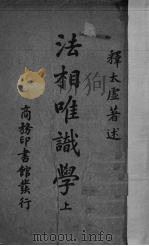 釋太虛著述
法相唯識學上
商務印書館發行
狗
mtoou.info